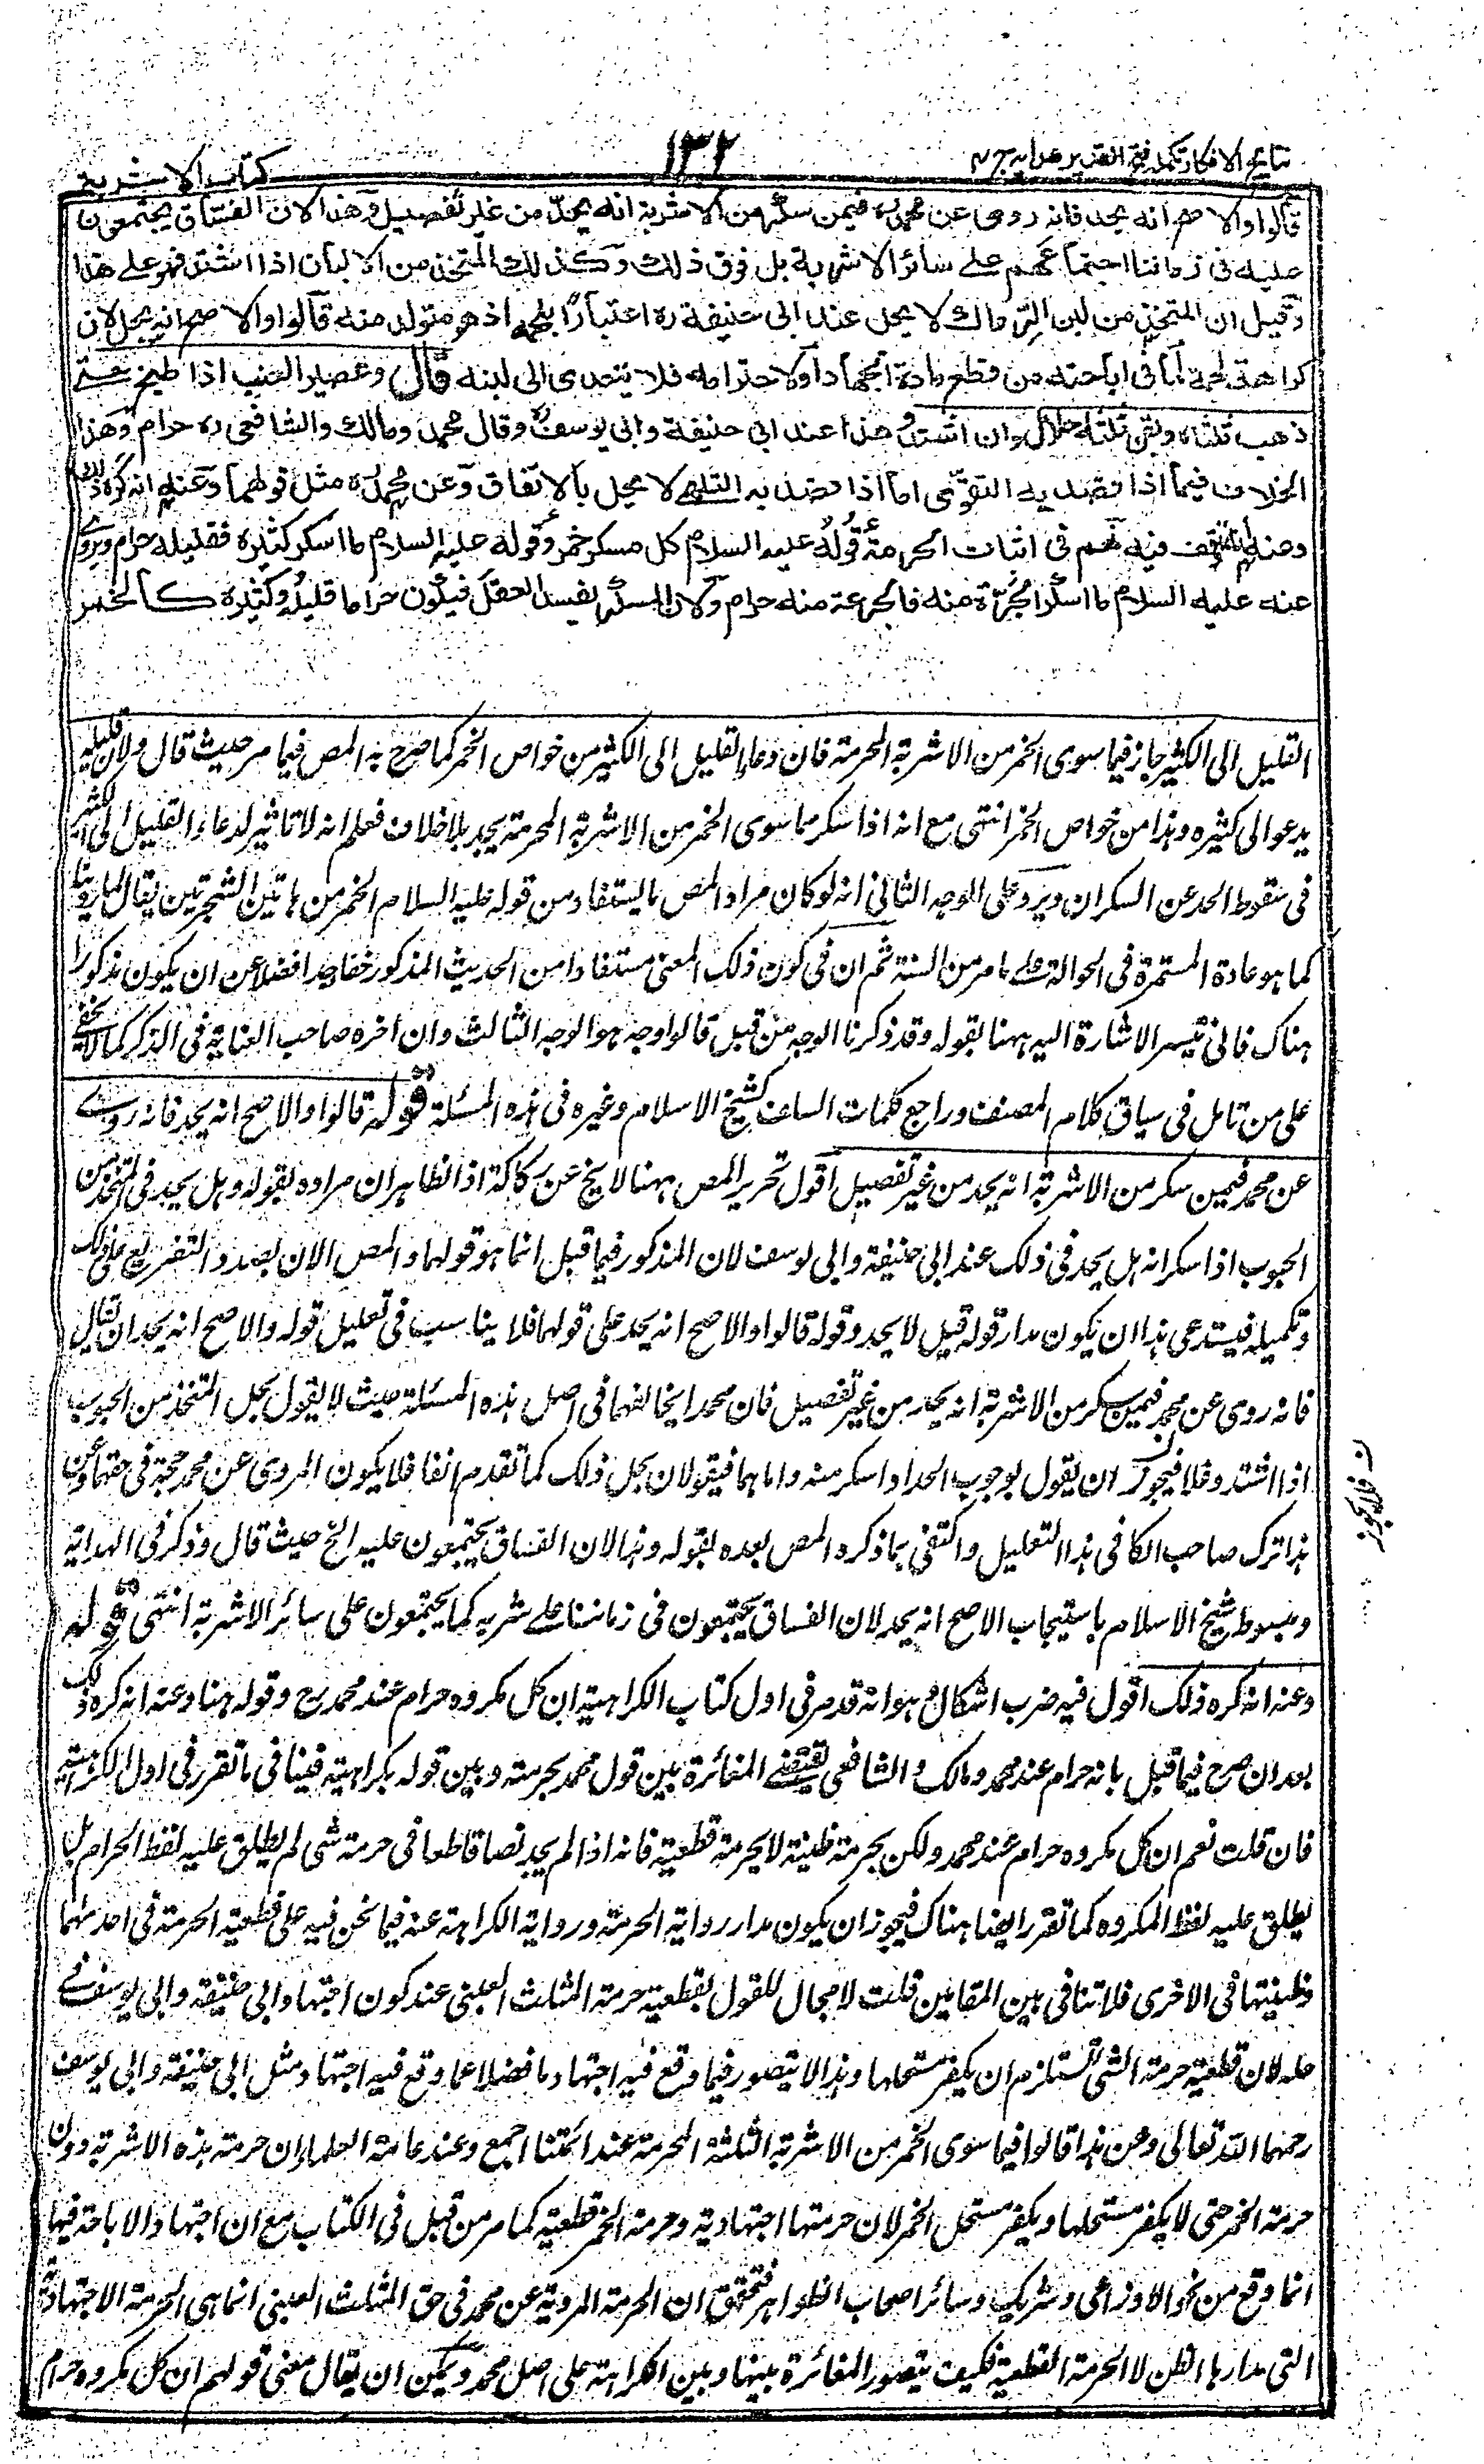 نتايج الافكار تكملہ فتح القدير هدايه ج ٤
١٣٢
كتاب الاشربة
قالوا والاصح انه يحد فانه روى عن محمد ره فيمن سكر من الاشربة انه يحد من غير تفصيل وهذا لان الفساق يجتمعون
عليه فى زماننا اجتماعهم على سائر الاشربة بل فوق ذلك وكذلك المتخذ من الالبان اذا اشتد فهو على هذا
وقيل ان المتخذ من لبن الرماك لا يحل عند ابى حنيفة ره اعتبارا بلحمه اذ هو متولد منه قالوا والاصح انه يحل لان
كراهة لحمه لما فى اباحته من قطع مادة الجهاد او لاحترامه فلا يتعدى الى لبنه قال وعصير العنب اذا طبخ حتى
ذهب ثلثاه وبقى ثلثه حلال وان اشتد وهذا عند ابى حنيفة وابى يوسف وقال محمد ومالك والشافعى ره حرام وهذا
الخلاف فيما اذا قصد به التقوى اما اذا قصد به التلهى لا يحل بالاتفاق وعن محمد ره مثل قولهما وعنه انه كره ذلك
وعنه انه توقف فيه لهم فى اثبات الحرمة قوله عليه السلام كل مسكر خمر وقوله عليه السلام ما اسكر كثيره فقليله حرام ويروى
عنه عليه السلام ما اسكر الجرة منه فالجرعة منه حرام ولان المسكر يفسد العقل فيكون حراما قليله وكثيره كالخمر
القليل الى الكثير جاز فيما سوى الخمر من الاشربة المحرمة فان دعاء القليل الى الكثير من خواص الخمر كما صرح به المص فيما مر حيث قال ولان قليله
يدعو الى كثيره وهذا من خواص الخمر انتهى مع انه اذا سكر مما سوى الخمر من الاشربة المحرمة يحد بلا خلاف فعلم انه لا تاثير لدعاء القليل الى الكثير
فى سقوط الحد عن السكران ويرد على الوجه الثانى انه لو كان مراد المص ما يستفاد من قوله عليه السلام الخمر من هاتين الشجرتين لقال لما روينا
كما هو عادة المستمرة فى الحوالة على ما مر من السنة ثم ان فى كون ذلك المعنى مستفادا من الحديث المذكور خفاء جدا فضلا عن ان يكون مذكورا
هناك فانى تيسر الاشارة اليه ههنا بقوله وقد ذكرنا الوجه من قبل قالوا وجه هو الوجه الثالث وان اخره صاحب العناية فى الذكر كما لا يخفى
على من تامل فى سياق كلام المصنف وراجع كلمات السلف كشيخ الاسلام وغيره فى هذه المسئلة قوله قالوا والاصح انه يحد فانه روى
عن محمد فيمن سكر من الاشربة انه يحد من غير تفصيل اقول تحرير المص ههنا لا يخ عن ركاكة اذ الظاهر ان مراده بقوله وهل يحد فى المتخذ من
الحبوب اذا سكر انه هل يحد فى ذلك عند ابى حنيفة وابى يوسف لان المذكور فيما قبل انما هو قولهما والمص الان بصدد التفريع على ذلك
وتكميله فيستدعى هذا ان يكون مدار قوله قيل لا يحد وقوله قالوا والاصح انه يحد على قولهما فلا يناسب فى تعليل قوله والاصح انه يحد ان يقال
فانه روى عن محمد فيمن سكر من الاشربة انه يحد من غير تفصيل فان محمدا يخالفهما فى اصل هذه المسئلة حيث لا يقول بحل المتخذ من الحبوب
اذا اشتد وغلا فيجوز ان يقول بوجوب الحد اذا سكر منه واما هما فيقولان بحل ذلك كما تقدم انفا فلا يكون المروى عن محمد حجة فى حقهما وعن
هذا ترك صاحب الكافى هذا التعليل واكتفى بما ذكره المص بعده بقوله وهذا لان الفساق يجتمعون عليه الخ حيث قال وذكر فى الهداية
ومبسوط شيخ الاسلام باستيجاب الاصح انه يحد لان الفساق يجتمعون فى زماننا على شربه كما يجتمعون على سائر الاشربة انتهى قوله
وعنه انه كره ذلك اقول فيه ضرب اشكال وهو انه قد مر فى اول كتاب الكراهية ان كل مكروه حرام عند محمد رح وقوله هنا وعنه انه كره ذلك
بعد ان صرح فيما قبل بانه حرام عند محمد ومالك والشافعى يقتضى المغائرة بين قول محمد بحرمته وبين قوله بكراهيته فينافى ما تقرر فى اول الكراهية
فان قلت نعم ان كل مكروه حرام عند محمد ولكن بحرمة ظنية لا بحرمة قطعية فانه اذا لم يجد نصا قاطعا فى حرمة شى لم يطلق عليه لفظ الحرام بل
يطلق عليه لفظ المكروه كما تقرر ايضا هناك فيجوز ان يكون مدار رواية الحرمة ورواية الكراهة عنه فيما نحن فيه على قطعية الحرمة فى احدىهما
وظنيتها فى الاخرى فلا تنافى بين المقامين قلت لا مجال للقول بقطعية حرمة المثلث العنبى عند كون اجتهاد ابى حنيفة وابى يوسف فى
حله لان قطعية حرمة الشى تستلزم ان يكفر مستحلها وهذا لا يتصور فيما وقع فيه اجتهاد ما فضلا عما وقع فيه اجتهاد مثل ابى حنيفة وابى يوسف
رحمهما الله تعالى وعن هذا قالوا فيما سوى الخمر من الاشربة الثلثة المحرمة عند ائمتنا اجمع وعند عامة العلماء ان حرمة هذه الاشربة دون
حرمة الخمر حتى لا يكفر مستحلها ويكفر مستحل الخمر لان حرمتها اجتهادية وحرمة الخمر قطعية كما مر من قبل فى الكتاب مع ان اجتهاد الاباحة فيها
انما وقع من نحو الاوزاعى وشريك وسائر اصحاب الظواهر فتحقق ان الحرمة المروية عن محمد فى حق المثلث العنبى انما هى الحرمة الاجتهادية
التى مدارها الظن لا الحرمة القطعية فكيف يتصور المغائرة بينها وبين الكراهة على اصل محمد ويمكن ان يقال معنى قولهم ان كل مكروه حرام